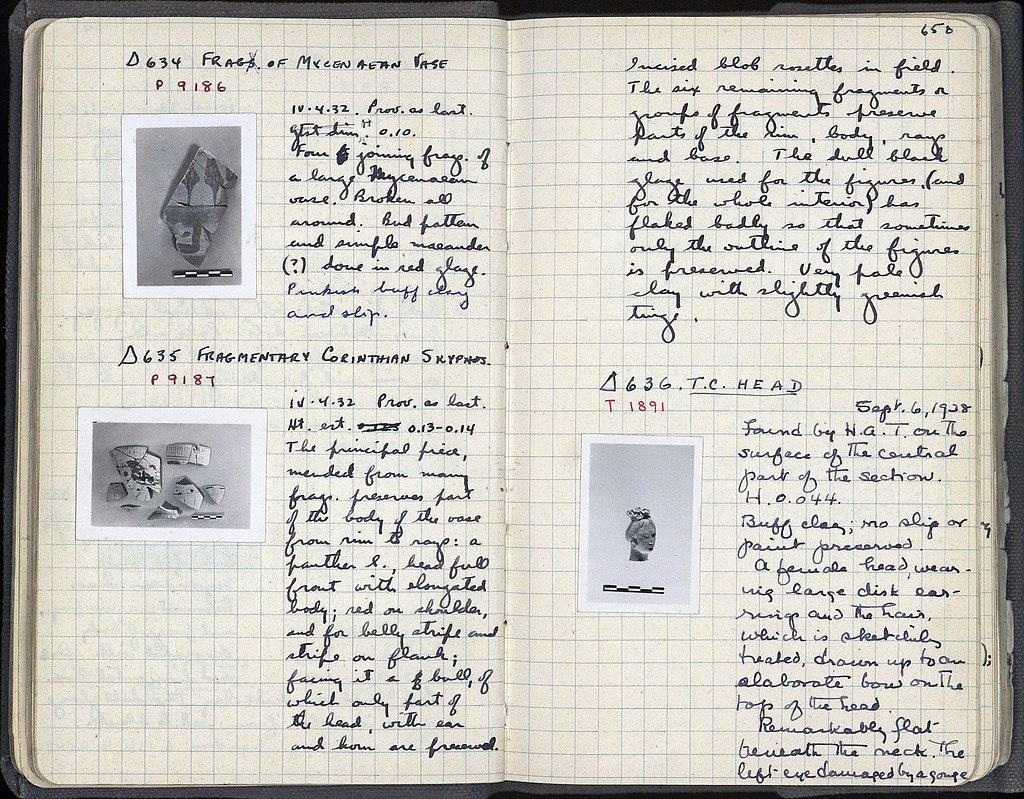 Δ 634 FRAGS. OF MYCENAEAN VASE
P 9186
IV.4.32. Prov. as last.
gtst dim. H 0.10.
Four joining frags. of
a large Mycenaean
vase. Broken all
around. Bud pattern
and simple maeander
(?) done in red glaze.
Pinkish buff clay
and slip.
Δ 635 FRAGMENTARY CORINTHIAN SKYPHOS.
P 9187
iv.4.32 Prov. as last.
Ht. est. 0.13-0.14
The principal piece,
mended from many
frags. preserves part
of the body of the vase
from rim to rays: a
panther l., head full
front with elongated
body; red on shoulder,
and for belly stripe and
stripe on flank;
facing it a bull, of
which only part of
the head, with ear
and horn are preserved.
650
Incised blob rosettes in field.
The six remaining fragments or
groups of fragments preserve
parts of the rim, body, rays
and base. The dull black
glaze used for the figures, (and
for the whole interior) has
flaked badly so that sometimes
only the outline of the figures
is preserved. Very pale
clay with slightly greenish
tinge.
Δ 636. T.C. HEAD
T 1891
Sept. 6, 1928
Found by H.A.T. on the
surface of the central
part of the section.
H. 0.044.
Buff clay; no slip or
paint preserved.
A female head, wear-
ing large disk ear-
rings and the hair,
which is sketchily
treated, drawn up to an
elaborate bow on the
top of the head.
Remarkably flat
beneath the neck. The
left eye damaged by a gouge